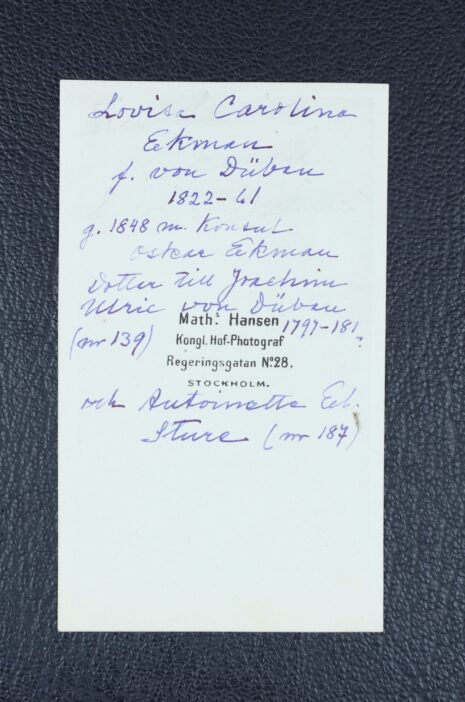 Lovisa Carolina
Eekman
f. von Düben
1822-61
g. 1848 m. Konsul
Oskar Eekman
Dotter till Joachim
Ulric von Düben
Math: Hansen 1797-181?
(nr 139) Kongl. Hof-Photograf
Regeringsgatan No 28.
STOCKHOLM.
och Antoinette Eeb.
Sture (nr 187)